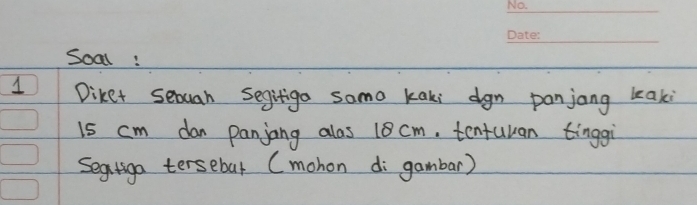 No.
Date:
Soal :
1 Diket sebuah segitiga sama kaki dgn panjang kaki
15 cm dan panjang alas 18 cm. tentukan tinggi
segitiga tersebut (mohon di gambar)